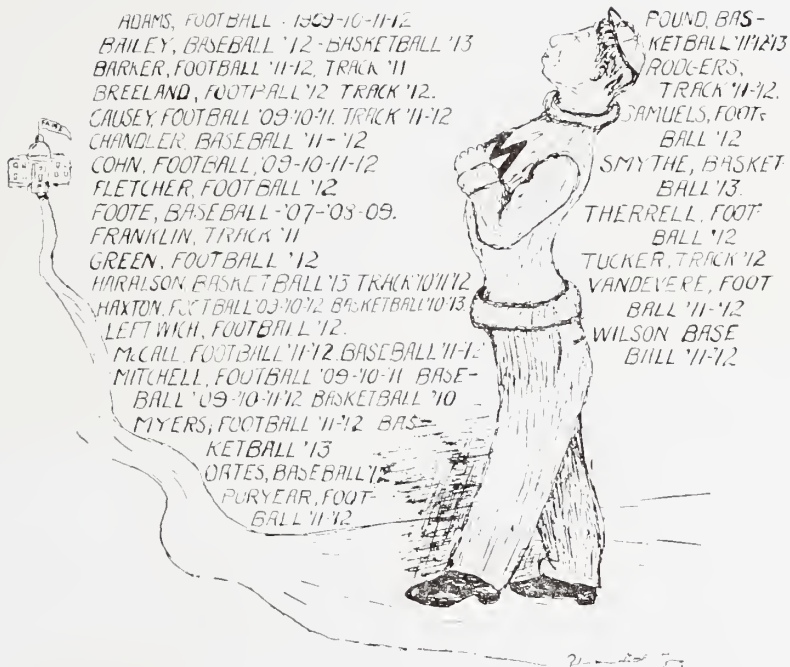 ADAMS, FOOTBALL · 1909-10-11-12
BAILEY, BASEBALL '12 - BASKETBALL '13
BARKER, FOOTBALL '11-12, TRACK '11
BREELAND, FOOTBALL '12 TRACK '12.
CAUSEY, FOOTBALL '09-10-11. TRACK '11-12
CHANDLER, BASEBALL '11-'12
COHN, FOOTBALL, '09-10-11-12
FLETCHER, FOOTBALL '12
FOOTE, BASEBALL-'07-'08-09.
FRANKLIN, TRACK '11
GREEN, FOOTBALL '12
HARALSON, BASKETBALL '13 TRACK '10'11'12
HAXTON, FOOTBALL '09-10-12 BASKETBALL '10-13
LEFTWICH, FOOTBALL '12.
McCALL, FOOTBALL '11-12. BASEBALL '11-12
MITCHELL, FOOTBALL '09-'10-11 BASE-
BALL '09-'10-11-'12 BASKETBALL '10
MYERS, FOOTBALL '11-'12 BAS-
KETBALL '13
OATES, BASEBALL '12
PURYEAR, FOOT-
BALL '11-'12
POUND, BAS-
KETBALL '11'12'13
RODGERS,
TRACK '11-'12.
SAMUELS, FOOT-
BALL '12
SMYTHE, BASKET
BALL '13.
THERRELL, FOOT-
BALL '12
TUCKER, TRACK '12
VANDEVERE, FOOT
BALL '11-'12
WILSON BASE
BALL '11-'12
M